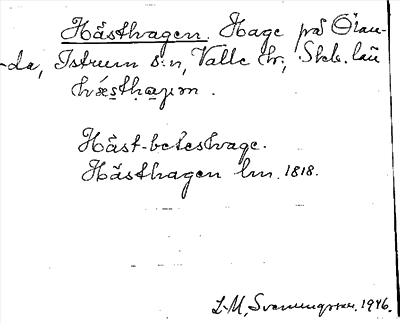 Hästhagen. Hage på Ölan-
-da, Istrum s:n, Valle hr, Skb. län
hǽs̱tḥa̱gɘn.
Häst-beteshage.
Hästhagen lm. 1818.
L-M, Svenungsson. 1946.